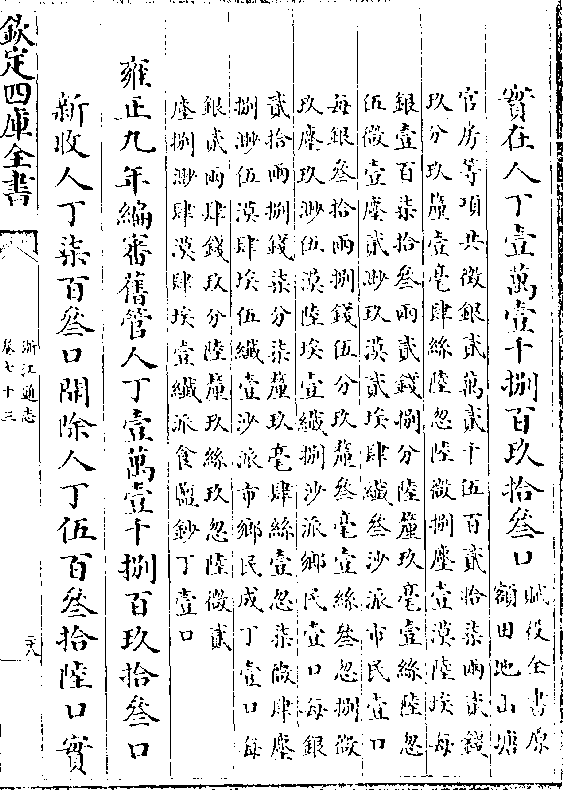 實在人丁壹萬壹千捌百玖拾叁口
賦役全書原
額田地山塘
官房等項共徵銀貳萬貳千伍百貳拾柒兩貳錢
玖分玖釐壹毫肆絲陸忽陸微捌塵壹漠陸埃每
銀壹百柒拾叁兩貳錢捌分陸釐玖毫壹絲陸忽
伍微壹塵貳渺玖漠貳埃肆纖叁沙派市民壹口
每銀叁拾兩捌錢伍分玖釐叁毫壹絲叁忽捌微
玖塵玖渺伍漠陸埃壹纖捌沙派鄉民壹口每銀
貳拾兩捌錢柒分柒釐玖毫肆絲壹忽柒微肆塵
捌渺伍漠肆埃伍纖壹沙派市鄉民成丁壹口每
銀貳兩肆錢玖分陸釐玖絲玖忽陸微貳
塵捌渺肆漠肆埃壹纖派食鹽鈔丁壹口
雍正九年編審舊管人丁壹萬壹千捌百玖拾叁口
新收人丁柒百叁口開除人丁伍百叁拾陸口實
欽定四庫全書
浙江通志
卷七十三